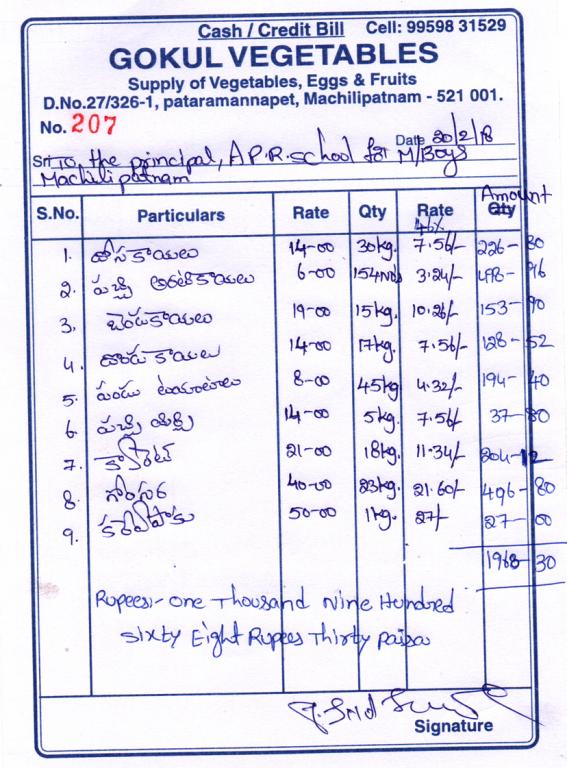 Cash / Credit Bill Cell: 99598 31529
GOKUL VEGETABLES
Supply of Vegetables, Eggs & Fruits
D.No.27/326-1, pataramannapet, Machilipatnam - 521 001.
No. 207
Date 20/2/18
Sri To, the principal, A.P.R. school for M/Boys
Machilipatnam
S.No. Particulars Rate Qty Rate 46% Amount Qty
1. దోసకాయలు 14-00 30kg. 7.56/- 226-80
2. పచ్చి అరటికాయలు 6-00 154Nos 3.24/- 498-96
3. బెండకాయలు 19-00 15kg. 10.26/- 153-90
4. దొండకాయలు 14-00 17kg. 7.56/- 128-52
5. పండు టమాటాలు 8-00 45kg 4.32/- 194-40
6. పచ్చి మిర్చి 14-00 5kg. 7.56/- 37-80
7. కారెట్ 21-00 18kg. 11.34/- 204-12
8. గోంగూర 40-00 23kg. 21.60/- 496-80
9. కరివేపాకు 50-00 1kg. 27/- 27-00
1968-30
Rupees:- One Thousand Nine Hundred
Sixty Eight Rupees Thirty paisa
Signature